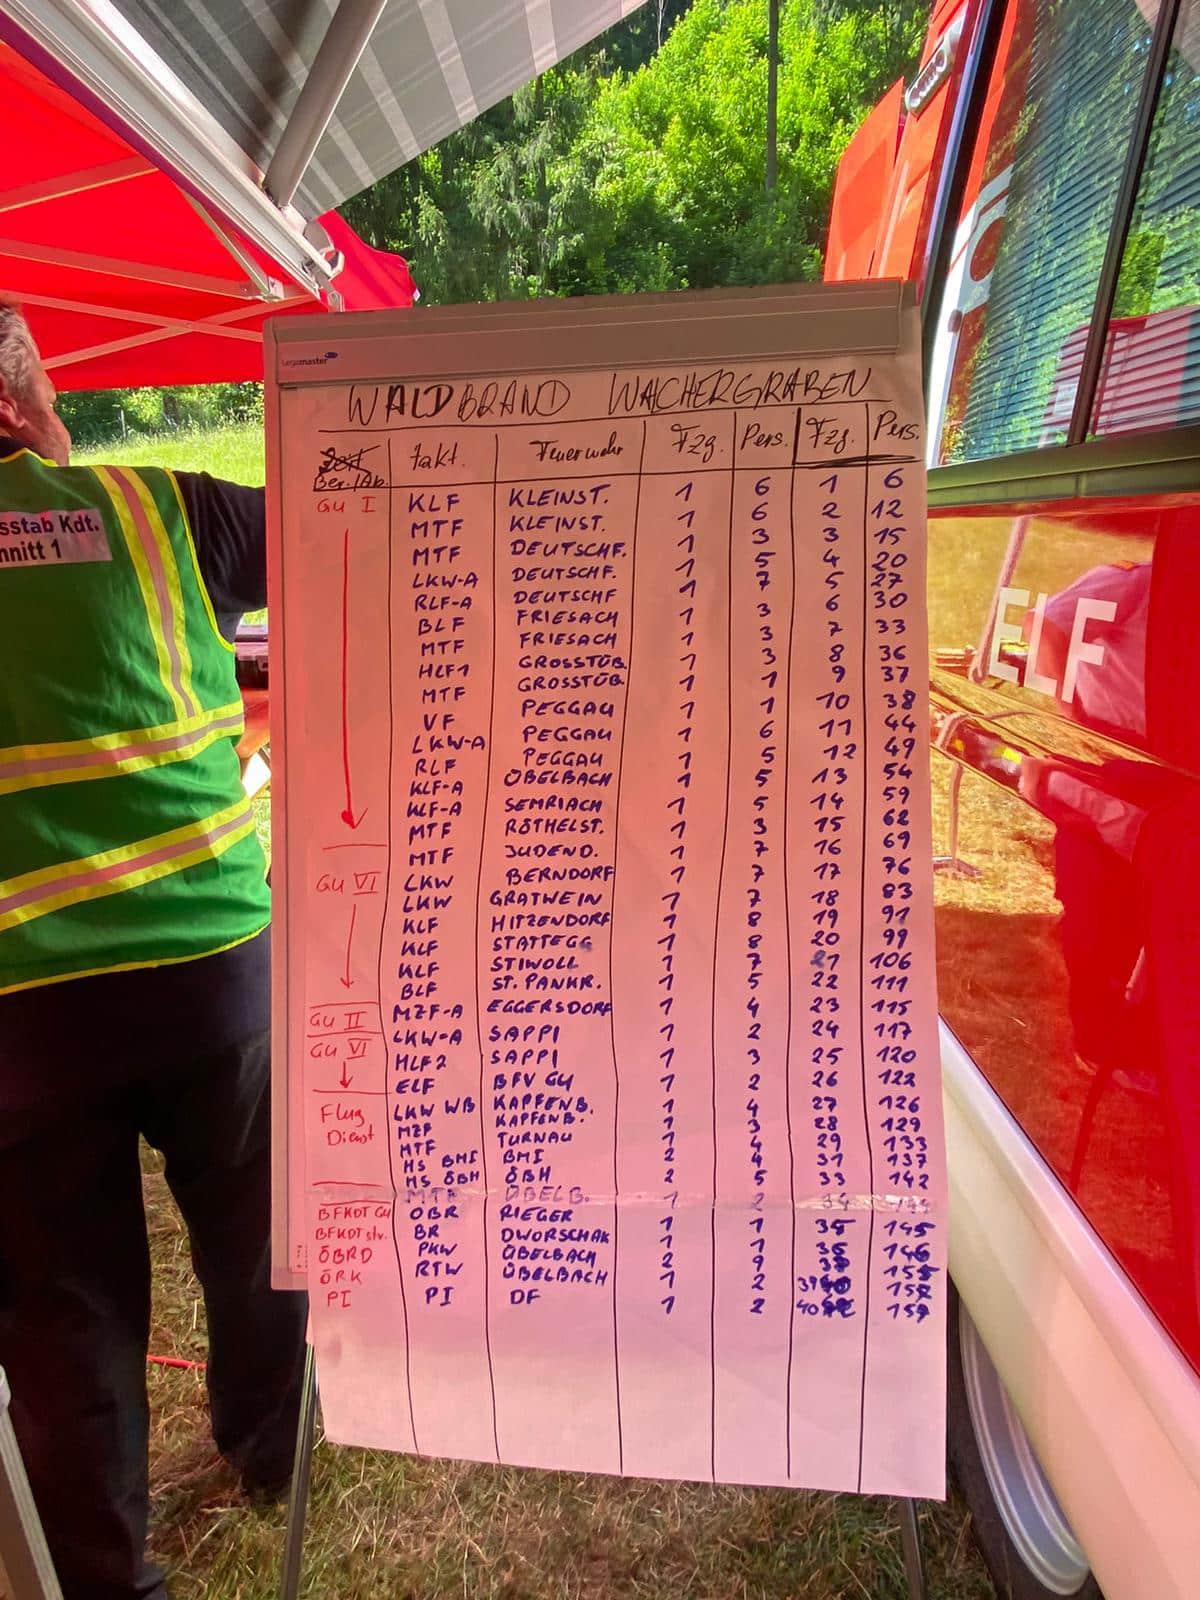 Legamaster
WALDBRAND WACHERGRABEN
Ber./Ab. Takt. Feuerwehr Fzg. Pers. Fzg. Pers.
GU I KLF KLEINST. 1 6 1 6
MTF KLEINST. 1 6 2 12
MTF DEUTSCHF. 1 3 3 15
LKW-A DEUTSCHF. 1 5 4 20
RLF-A DEUTSCHF 1 7 5 27
BLF FRIESACH 1 3 6 30
MTF FRIESACH 1 3 7 33
HLF1 GROSSTÜB. 1 3 8 36
MTF GROSSTÜB. 1 1 9 37
VF PEGGAU 1 1 10 38
LKW-A PEGGAU 1 6 11 44
RLF PEGGAU 1 5 12 49
KLF-A ÜBELBACH 1 5 13 54
KLF-A SEMRIACH 1 5 14 59
MTF RÖTHELST. 1 3 15 62
MTF JUDEND. 1 7 16 69
GU VI LKW BERNDORF 1 7 17 76
LKW GRATWEIN 1 7 18 83
KLF HITZENDORF 1 8 19 91
KLF STATTEGG 1 8 20 99
KLF STIWOLL 1 7 21 106
BLF ST. PANKR. 1 5 22 111
GU II MZF-A EGGERSDORF 1 4 23 115
GU VI LKW-A SAPPI 1 2 24 117
HLF2 SAPPI 1 3 25 120
ELF BFV GU 1 2 26 122
Flug Dienst LKW WB KAPFENB. 1 4 27 126
MZF KAPFENB. 1 3 28 129
MTF TURNAU 1 4 29 133
HS BMI BMI 2 4 31 137
HS ÖBH ÖBH 2 5 33 142
MTF ÜBELB. 1 2 34 144
BFKDT GU OBR RIEGER 1 1 35 145
BFKDT stv. BR DWORSCHAK 1 1 36 146
ÖBRD PKW ÜBELBACH 2 9 155
ÖRK RTW ÜBELBACH 1 2 39 157
PI PI DF 1 2 40 159
sstab Kdt.
nnitt 1
ELF